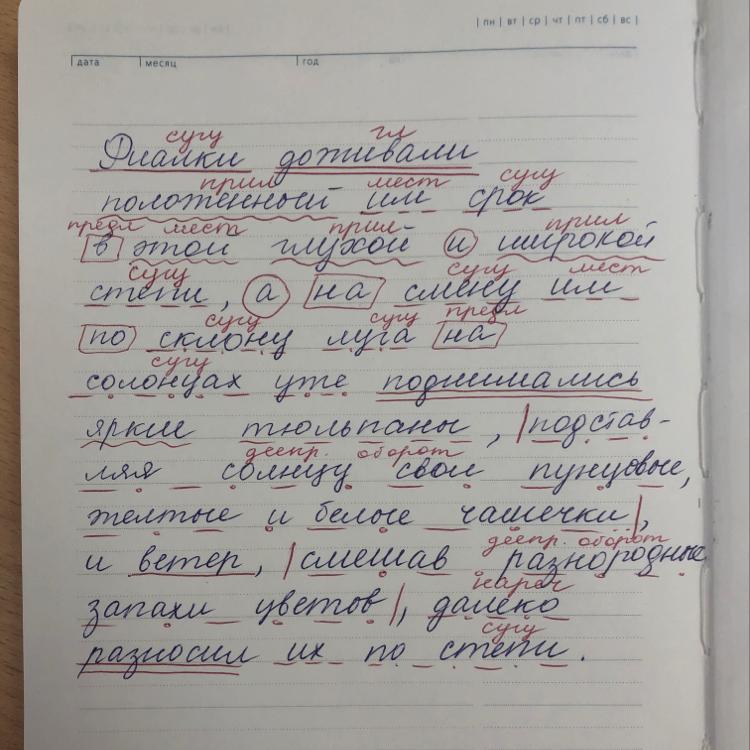 | пн | вт | ср | чт | пт | сб | вс |
дата месяц год
сущ гл
Фиалки доживали
прил мест сущ
положенный им срок
предл мест прил прил
в этой глухой и широкой
сущ сущ мест
степи, а на смену им
сущ сущ предл
по склону луга на
сущ
солонцах уже поднимались
яркие тюльпаны, |подстав-
деепр. оборот
ляя солнцу свои пунцовые,
желтые и белые чашечки|,
деепр. оборот
и ветер, |смешав разнородные
нареч
запахи цветов|, далеко
сущ
разносил их по степи.